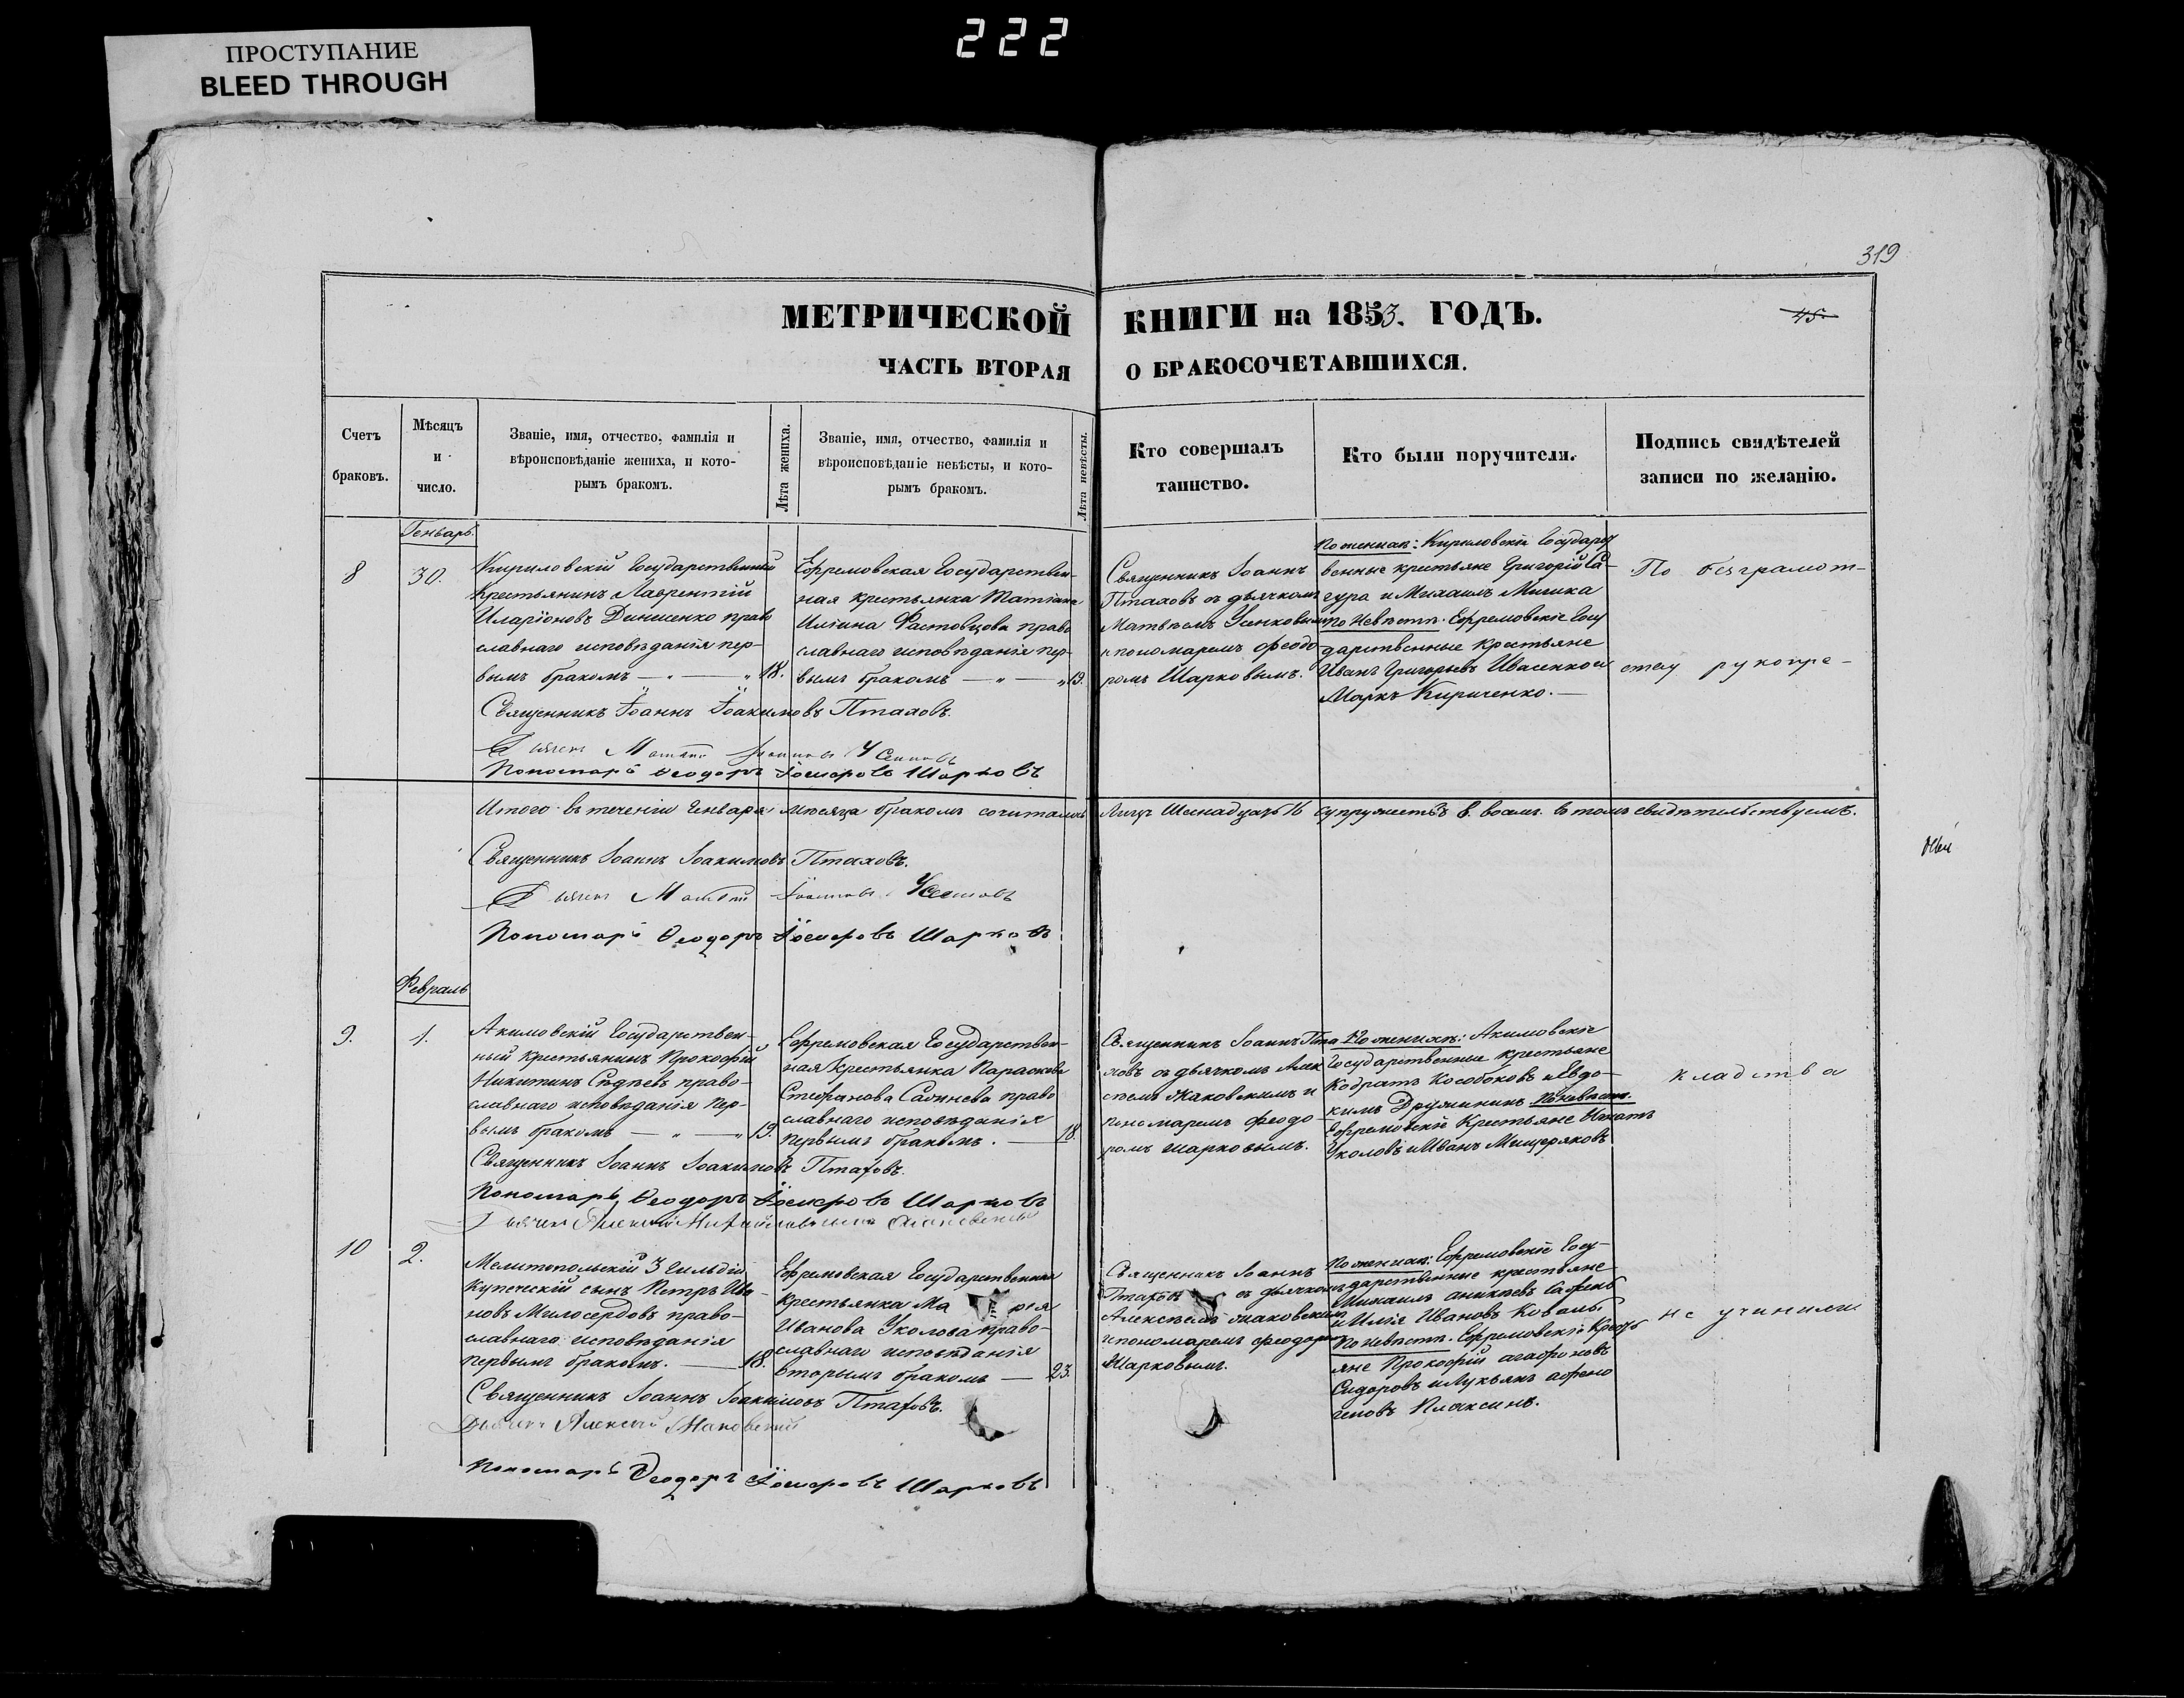 222
ПРОСТУПАНИЕ
BLEED THROUGH
319
МЕТРИЧЕСКОЙ КНИГИ на 1853. ГОДЪ.
45.
ЧАСТЬ ВТОРАЯ О БРАКОСОЧЕТАВШИХСЯ.
Счетъ
браковъ.
Мѣсяцъ
и
число.
Званіе, имя, отчество, фамилія и
вѣроисповѣданіе жениха, и кото-
рымъ бракомъ.
Лѣта жениха.
Званіе, имя, отчество, фамилія и
вѣроисповѣданіе невѣсты, и кото-
рымъ бракомъ.
Лѣта невѣсты.
Кто совершалъ
таинство.
Кто были поручители.
Подпись свидѣтелей
записи по желанію.
Генварь.
8
30.
Кириловскій Государственный
Крестьянинъ Лаврентій
Иларіоновъ Данименко право
славнаго исповѣданія пер-
вымъ бракомъ — „ — „ 18.
Ефремовская Государствен-
ная крестьянка Татіана
Иліина Растовцова право
славнаго исповѣданія пер-
вымъ бракомъ — „ — „ 19.
Священникъ Іоаннъ
Птаховъ съ дьячкомъ
Матвѣемъ Усенковымъ
и пономаремъ Феодо-
ромъ Шарковымъ.
По женихѣ: Кириловскіе Государст
венные крестьяне Григорій Са-
гура и Михаилъ Мишка
По Невѣстѣ. Ефремовскіе Госу
дарственные крестьяне
Иванъ Григорьевъ Ивасенко и
Маркъ Кириченко. —
По безграмот-
ству рукопре-
Священникъ Іоаннъ Іоакимовъ Птаховъ.
Дьячекъ Матвій Іоанновъ Усенковъ
Пономарь Феодоръ Іосифовъ Шарковъ
Итого въ теченіи Генваря мѣсяца бракомъ сочиталось Лицъ Шеснадцать 16 супружествъ 8. восемь. въ томъ свидѣтельствуемъ.
Священникъ Іоаннъ Іоакимовъ Птаховъ.
Дьячекъ Матвій Іоанновъ Усенковъ
Пономарь Феодоръ Іосифовъ Шарковъ
Февраль
9.
1.
Акимовскій Государствен-
ный крестьянинъ Прокофій
Никитинъ Сѣдневъ право-
славнаго исповѣданія пер-
вымъ бракомъ — „ — „ 19.
Ефремовская Государствен-
ная Крестьянка Параскева
Стефанова Савинева право
славнаго исповѣданія
первымъ бракомъ. — 18.
Священникъ Іоаннъ Пта
ховъ съ дьячкомъ Алек
сѣемъ Маковскимъ и
пономаремъ Феодо-
ромъ Шарковымъ.
По женихѣ: Акимовскіе
Государственные крестьяне
Кодратъ Кособоковъ и Евдо-
кимъ Дружининъ По невѣстѣ.
Ефремовскіе Крестьяне Игнатъ
Уколовъ и Иванъ Мищеряковъ
кладства
Священникъ Іоаннъ Іоакимовъ Птаховъ.
Пономарь Феодоръ Іосифовъ Шарковъ
10
2.
Мелитопольскій 3 гильдіи
Купеческій сынъ Петръ Ива-
новъ Милосердовъ право-
славнаго исповѣданія
первымъ бракомъ. — 18.
Ефремовская Государственная
Крестьянка Ма рѳа
Иванова Уколова право-
славнаго исповѣданія
вторымъ бракомъ — 23.
Священникъ Іоаннъ
Птаховъ съ дьячкомъ
Алексѣемъ Маковскимъ
и пономаремъ Феодоромъ
Шарковымъ.
По женихѣ: Ефремовскіе Госу-
дарственные крестьяне
Михаилъ Аникѣевъ
и Илія Ивановъ Коваль.
По невѣстѣ. Ефремовскіе Кресть
яне Прокофій Агафоновъ
Сидоровъ и Лукьянъ Афено
геновъ Плаксинъ.
не учинили
Священникъ Іоаннъ Іоакимовъ Птаховъ.
Дьячекъ Алексѣй Маковскій
Пономарь Феодоръ Іосифовъ Шарковъ